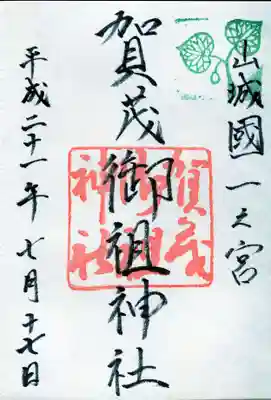 山城國一之宮
賀茂御祖神社
平成二十一年七月十七日
賀茂
御祖
神社